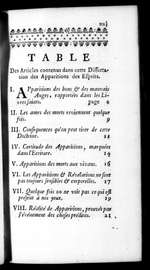 TABLE
Des Articles contenus dans cette Disserta-
tion des Apparitions des Esprits.
I. Apparitions des bons & des mauvais
Anges, rapportées dans les Li-
vres saints. page 2
II. Les ames des morts reviennent quelque
fois. 9
III. Consequences qu'on peut tirer de cette
Doctrine. 12
IV. Certitude des Apparitions, marquées
dans l'Ecriture. 14
V. Apparitions des morts aux vivans. 16
VI. Les Apparitions & Révelations ne sont
pas toujours sensibles & corporelles. 17
VII. Quelque fois on ne voit pas ce qui est
présent à nos yeux. 19
VIII. Réalité des Apparitions, prouvée par
l'évenement des choses prédites. 21